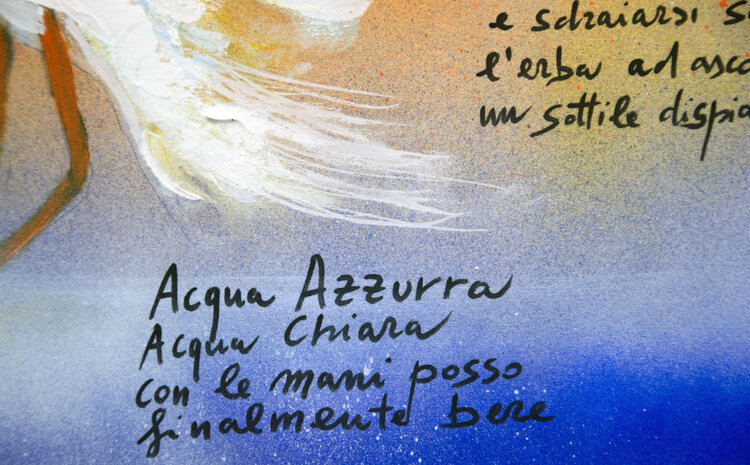 e sdraiarsi s
l'erba ad asco
un sottile dispia
Acqua Azzurra
Acqua Chiara
con le mani posso
finalmente bere